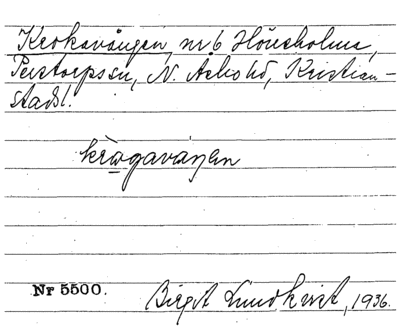 Krokavången, nr 6 Hönsholma,
Perstorps sn, N. Åsbo hd, Kristian-
stads l.
krògavaŋen
Nr 5500.
Birgit Lundkvist, 1936.